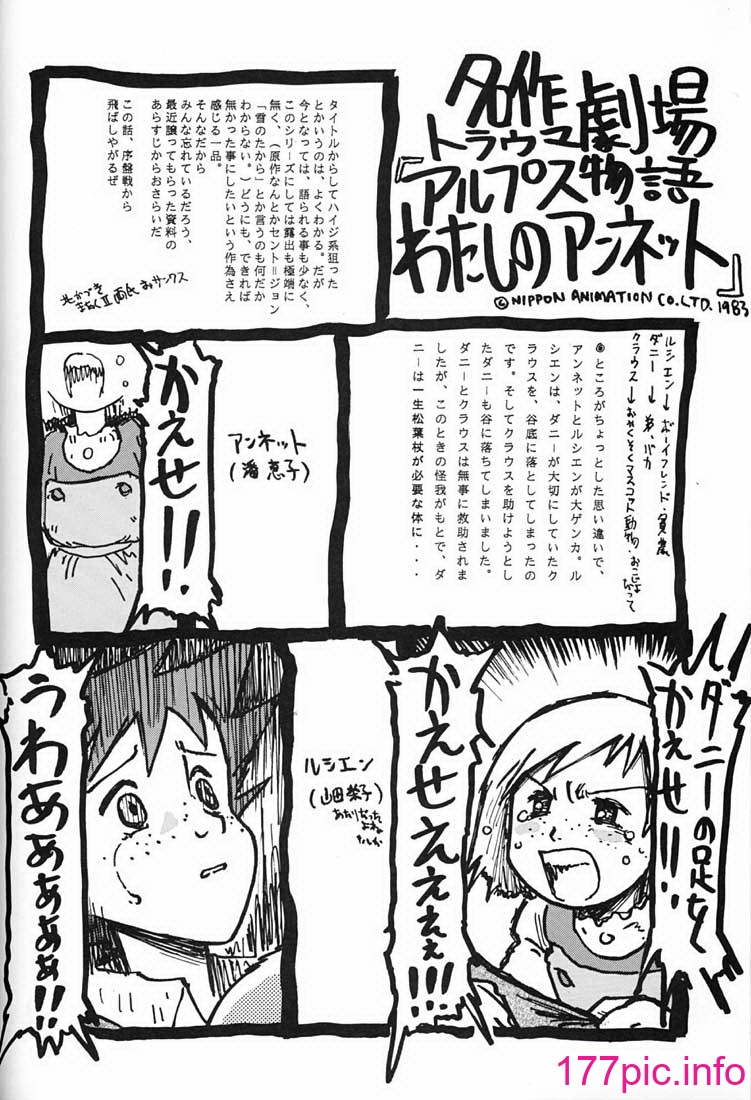 名作
トラウマ劇場
『アルプス物語
わたしのアンネット』
©NIPPON ANIMATION CO.LTD. 1983
タイトルからしてハイジ系狙った
とかいうのは、よくわかる。だが
今となっては、語られる事も少なく、
このシリーズにしては露出も極端に
無く、(原作なんとかセント=ジョン
「雪のたから」とか言うのも何だか
わからない。)どうにも、できれば
無かった事にしたいという作為さえ
感じる一品。
そんなだから
みんな忘れているだろう、
最近譲ってもらった資料の
あらすじからおさらいだ
この話、序盤戦から
飛ばしやがるぜ
ルシエン→ボーイフレンド・貧農
ダニー→弟、バカ
クラウス→おやくそくマスコット動物・おこじょ
だって
◉ところがちょっとした思い違いで、
アンネットとルシエンが大ゲンカ。ル
シエンは、ダニーが大切にしていたク
ラウスを、谷底に落としてしまったの
です。そしてクラウスを助けようとし
たダニーも谷に落ちてしまいました。
ダニーとクラウスは無事に救助されま
したが、このときの怪我がもとで、ダ
ニーは一生松葉杖が必要な体に・・・
アンネット
(潘恵子)
かえせ!!
ダニーの足を
かえせ!!
かえせえええぇ!!!
ルシエン
(山田栄子)
うわあぁぁぁぁ!!
177pic.info